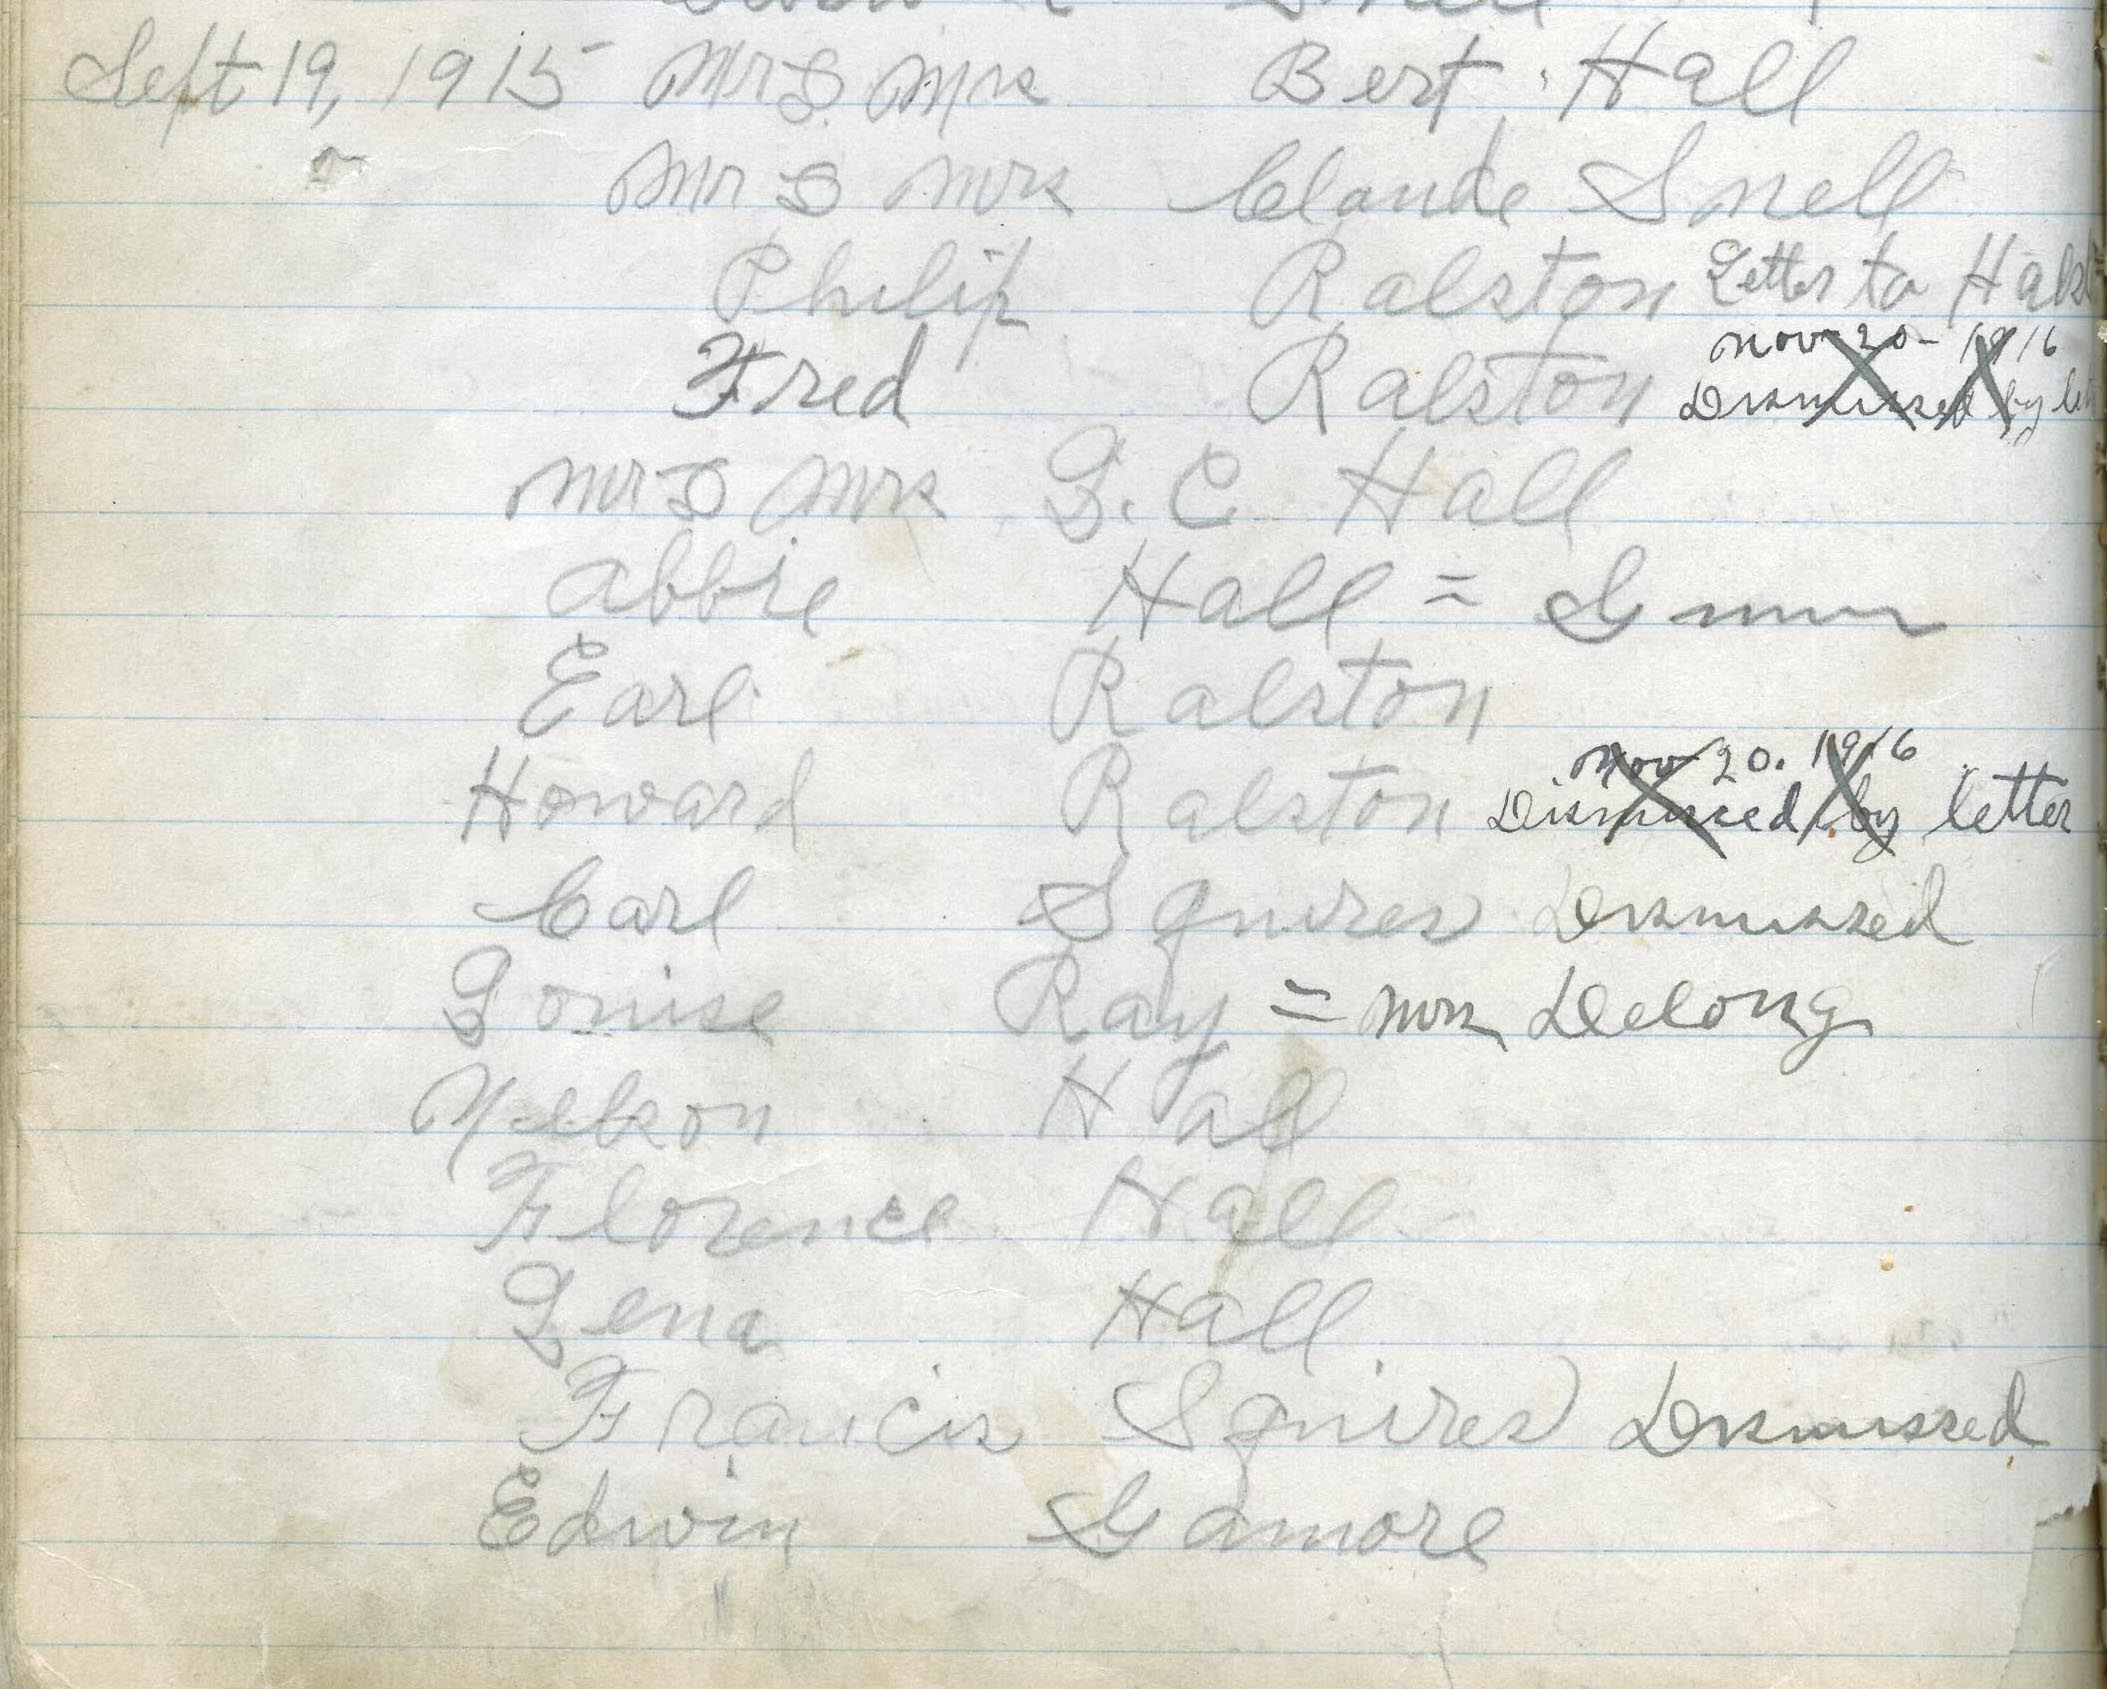 Sept 19, 1915 Mr & Mrs Bert Hall
Mr & Mrs Claude Snell
Philip Ralston Letter to
Nov 20 - 1916
Fred Ralston Dismissed by
Mr & Mrs L. C Hall
Abbie Hall =
Earl Ralston
Nov 20. 1916
Howard Ralston Dismissed by letter
Carl Squires Dismissed
Louise Ray = Mrs Delong
Nelson Hall
Florence Hall
Lena Hall
Francis Squires Dismissed
Edwin Gamore